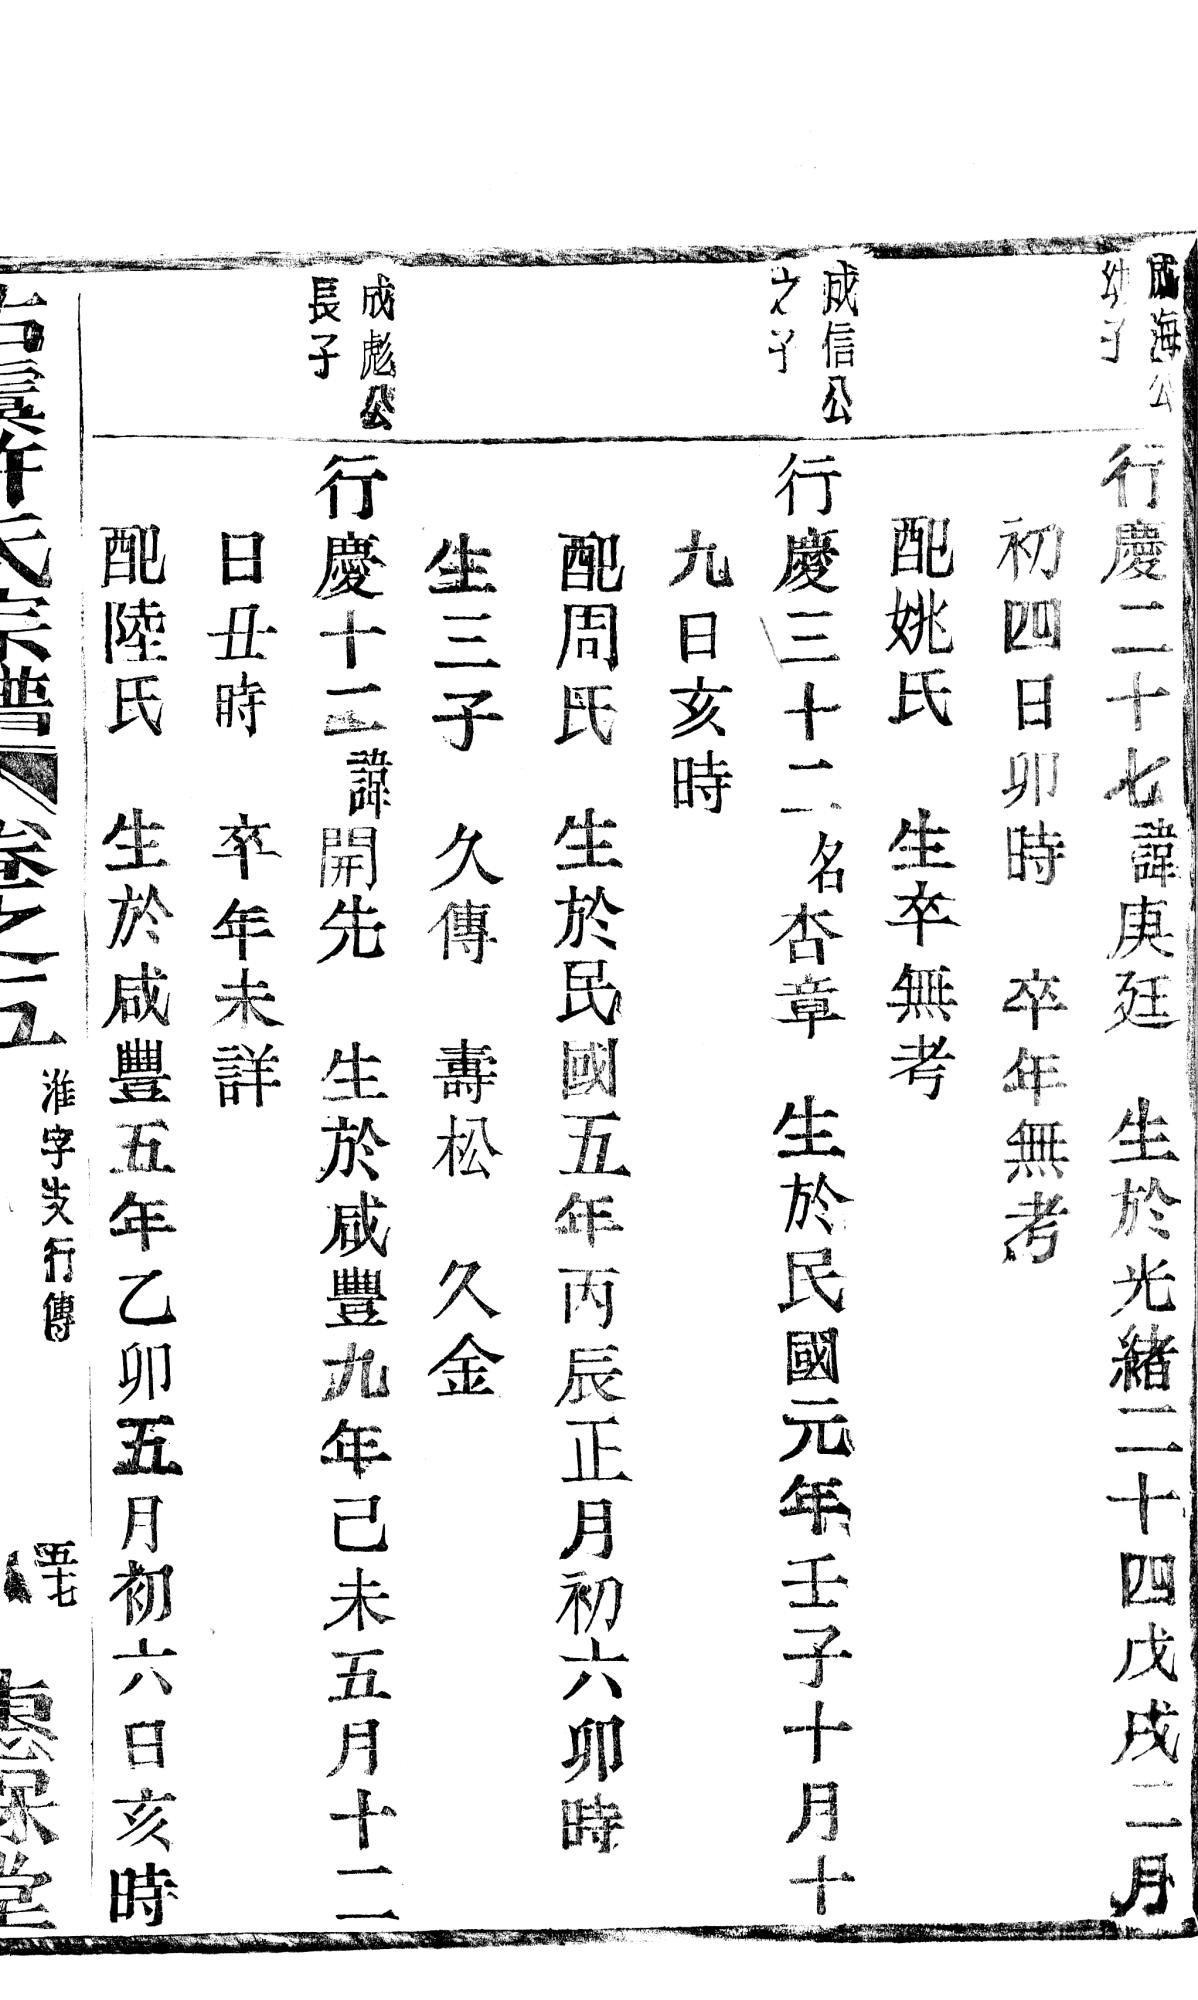 成海公
幼子
行慶二十七諱庚廷　生於光緒二十四戊戌二月
初四日卯時　卒年無考
配姚氏　生卒無考
成信公
之子
行慶三十二名杏章　生於民國元年壬子十月十
九日亥時
配周氏　生於民國五年丙辰正月初六卯時
生三子　久傳　壽松　久金
成彪公
長子
行慶十二諱開先　生於咸豐九年己未五月十二
日丑時　卒年未詳
配陸氏　生於咸豐五年乙卯五月初六日亥時
古虞許氏宗譜 卷之五
淮字支行傳
五七
惠保堂